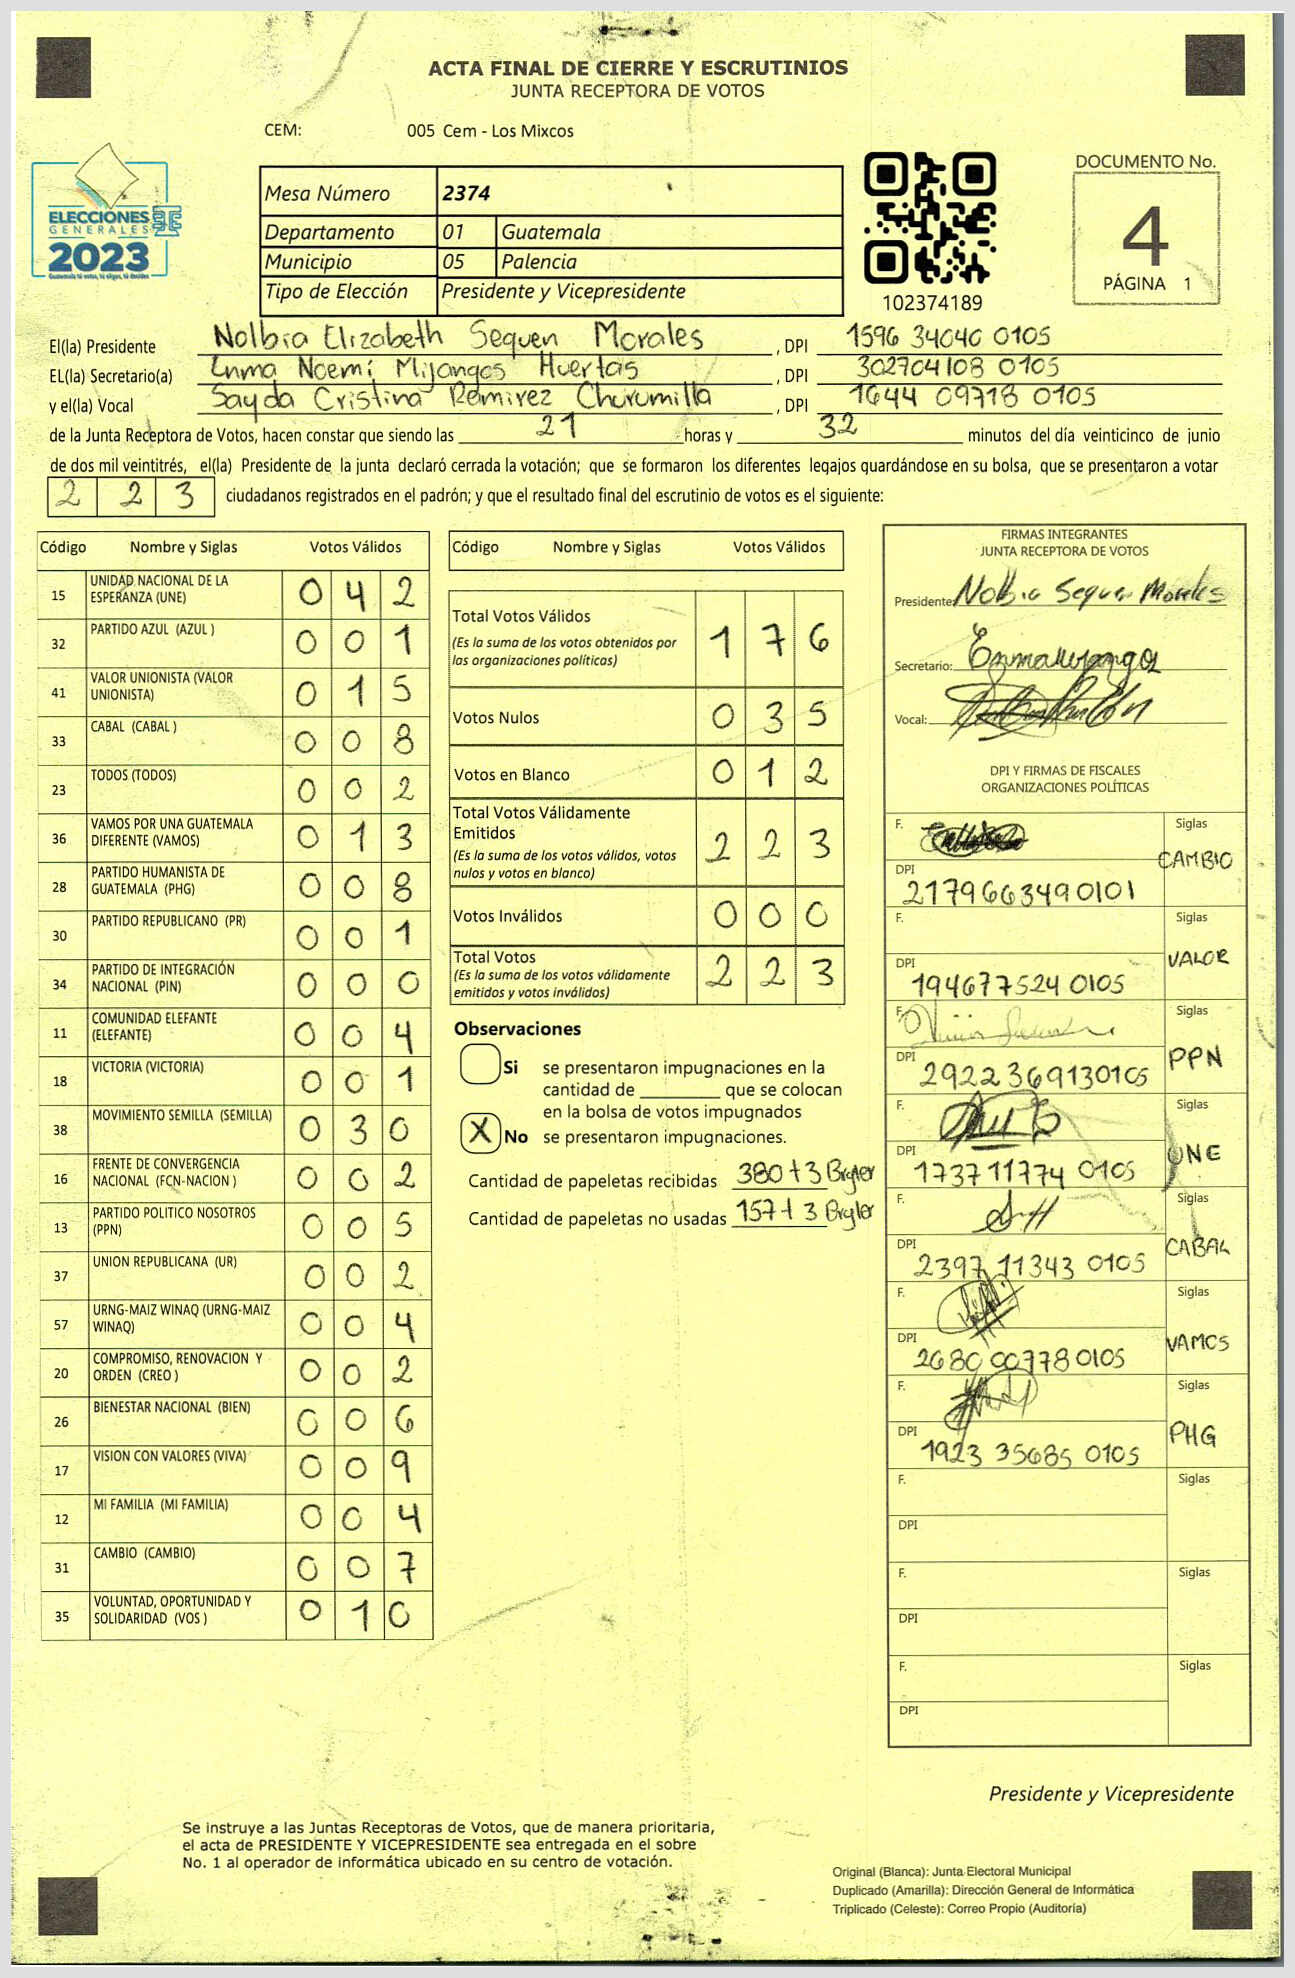 ACTA FINAL DE CIERRE Y ESCRUTINIOS
JUNTA RECEPTORA DE VOTOS
CEM: 005 Cem - Los Mixcos
ELECCIONES
GENERALES
2023
Mesa Número 2374
Departamento 01 Guatemala
Municipio 05 Palencia
Tipo de Elección Presidente y Vicepresidente
102374189
DOCUMENTO No.
4
PÁGINA 1
El(la) Presidente Nolbia Elizabeth Sequen Morales , DPI 1596 34040 0105
EL(la) Secretario(a) Enma Noemí Mijangos Huertas , DPI 302704108 0105
y el(la) Vocal Sayda Cristina Ramirez Churumilla , DPI 1644 09718 0105
de la Junta Receptora de Votos, hacen constar que siendo las 21 horas y 32 minutos del día veinticinco de junio
de dos mil veintitrés, el(la) Presidente de la junta declaró cerrada la votación; que se formaron los diferentes legajos guardándose en su bolsa, que se presentaron a votar
2 2 3 ciudadanos registrados en el padrón; y que el resultado final del escrutinio de votos es el siguiente:
Código Nombre y Siglas Votos Válidos
15 UNIDAD NACIONAL DE LA ESPERANZA (UNE) 0 4 2
32 PARTIDO AZUL (AZUL ) 0 0 1
41 VALOR UNIONISTA (VALOR UNIONISTA) 0 1 5
33 CABAL (CABAL ) 0 0 8
23 TODOS (TODOS) 0 0 2
36 VAMOS POR UNA GUATEMALA DIFERENTE (VAMOS) 0 1 3
28 PARTIDO HUMANISTA DE GUATEMALA (PHG) 0 0 8
30 PARTIDO REPUBLICANO (PR) 0 0 1
34 PARTIDO DE INTEGRACIÓN NACIONAL (PIN) 0 0 0
11 COMUNIDAD ELEFANTE (ELEFANTE) 0 0 4
18 VICTORIA (VICTORIA) 0 0 1
38 MOVIMIENTO SEMILLA (SEMILLA) 0 3 0
16 FRENTE DE CONVERGENCIA NACIONAL (FCN-NACION ) 0 0 2
13 PARTIDO POLITICO NOSOTROS (PPN) 0 0 5
37 UNION REPUBLICANA (UR) 0 0 2
57 URNG-MAIZ WINAQ (URNG-MAIZ WINAQ) 0 0 4
20 COMPROMISO, RENOVACION Y ORDEN (CREO ) 0 0 2
26 BIENESTAR NACIONAL (BIEN) 0 0 6
17 VISION CON VALORES (VIVA) 0 0 9
12 MI FAMILIA (MI FAMILIA) 0 0 4
31 CAMBIO (CAMBIO) 0 0 7
35 VOLUNTAD, OPORTUNIDAD Y SOLIDARIDAD (VOS ) 0 1 0
Código Nombre y Siglas Votos Válidos
Total Votos Válidos 1 7 6
(Es la suma de los votos obtenidos por
las organizaciones políticas)
Votos Nulos 0 3 5
Votos en Blanco 0 1 2
Total Votos Válidamente
Emitidos 2 2 3
(Es la suma de los votos válidos, votos
nulos y votos en blanco)
Votos Inválidos 0 0 0
Total Votos 2 2 3
(Es la suma de los votos válidamente
emitidos y votos inválidos)
Observaciones
Si se presentaron impugnaciones en la
cantidad de ________ que se colocan
en la bolsa de votos impugnados
X No se presentaron impugnaciones.
Cantidad de papeletas recibidas 380 + 3
Cantidad de papeletas no usadas 157 + 3
FIRMAS INTEGRANTES
JUNTA RECEPTORA DE VOTOS
Presidente: Nolbia Sequen Morales
Secretario:
Vocal:
DPI Y FIRMAS DE FISCALES
ORGANIZACIONES POLÍTICAS
F. Siglas CAMBIO
DPI 2179663490101
F. Siglas VALOR
DPI 194677524 0105
F. Siglas PPN
DPI 2922369130105
F. Siglas UNE
DPI 1737 11774 0105
F. Siglas CABAL
DPI 2397 11343 0105
F. Siglas VAMOS
DPI 2680 00778 0105
F. Siglas PHG
DPI 1923 35685 0105
F. Siglas
DPI
F. Siglas
DPI
F. Siglas
DPI
Presidente y Vicepresidente
Se instruye a las Juntas Receptoras de Votos, que de manera prioritaria,
el acta de PRESIDENTE Y VICEPRESIDENTE sea entregada en el sobre
No. 1 al operador de informática ubicado en su centro de votación.
Original (Blanca): Junta Electoral Municipal
Duplicado (Amarilla): Dirección General de Informática
Triplicado (Celeste): Correo Propio (Auditoría)